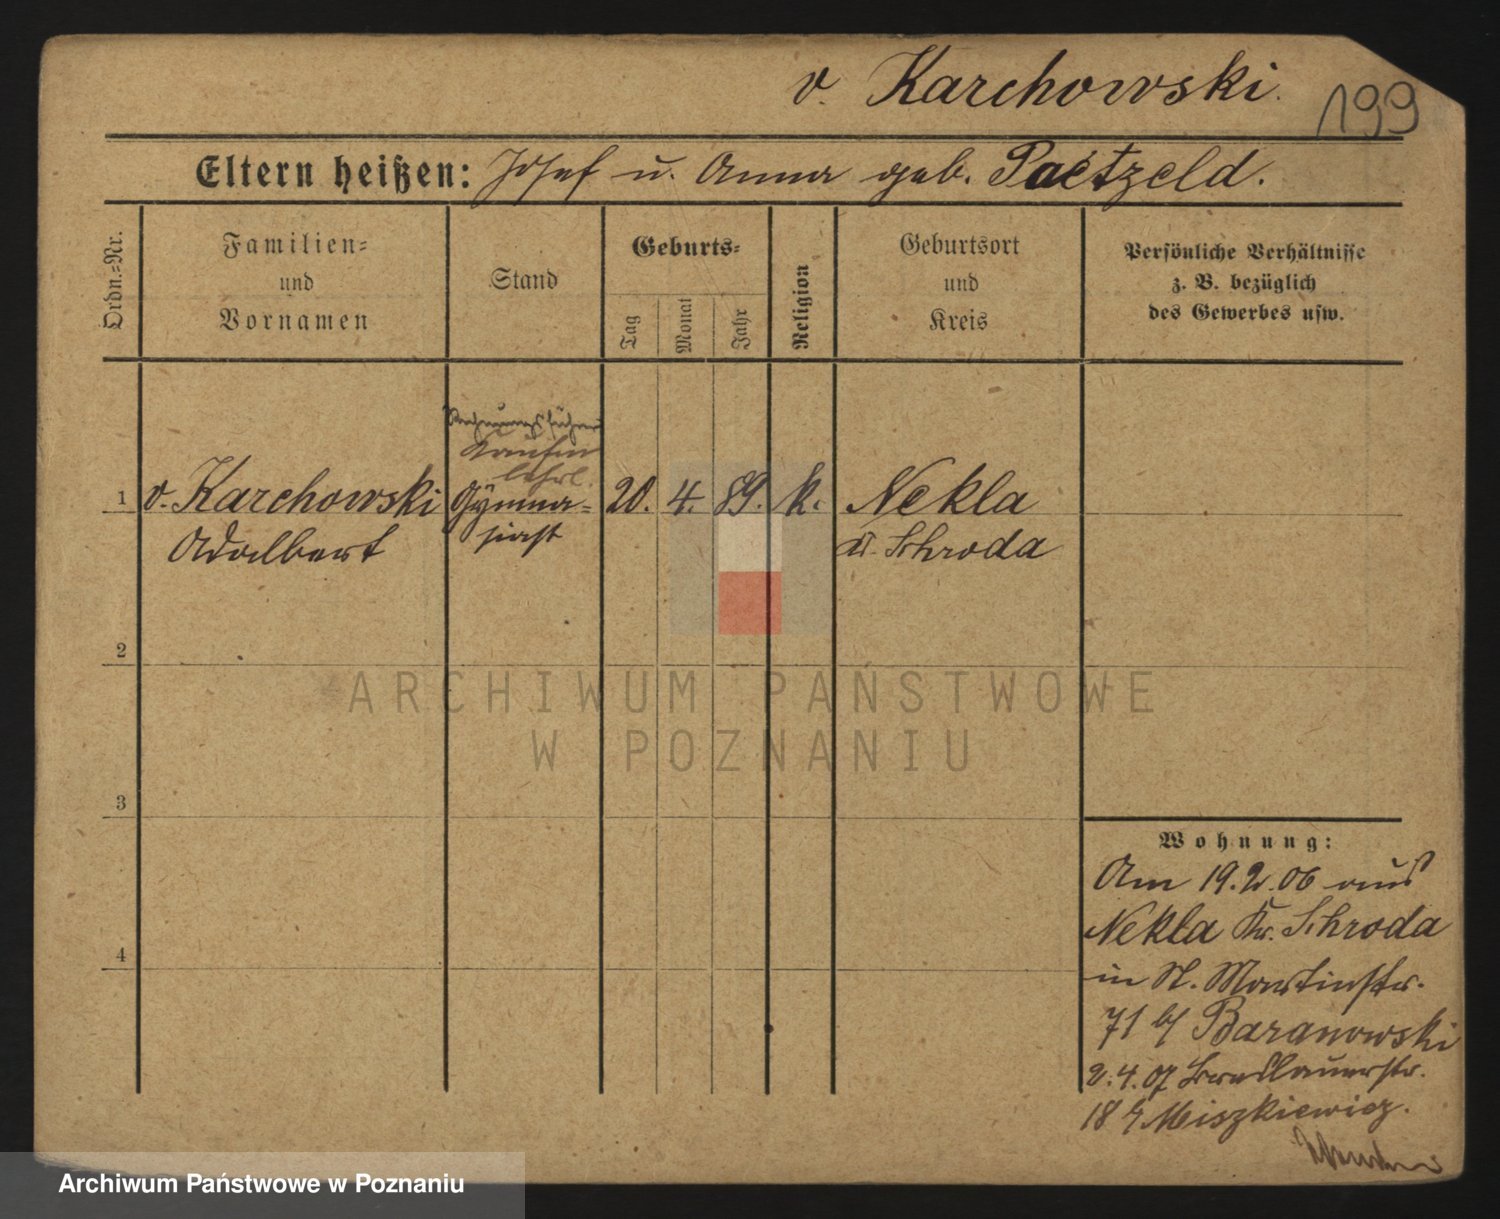 v. Karchowski.
199
Eltern heißen: Josef u. Anna geb. Paetzeld.
Ordn.-Nr.
Familien-
und
Vornamen
Stand
Geburts-
Tag
Monat
Jahr
Religion
Geburtsort
und
Kreis
Persönliche Verhältnisse
z. B. bezüglich
des Gewerbes usw.
Rechnungsführer
Kaufm
lehrl.
1 v. Karchowski Gymna- 20. 4. 89. k. Nekla
Adalbert siast Kr. Schroda
2
3
4
Wohnung:
Am 19.2.06 aus
Nekla Kr. Schroda
in St. Martinstr.
71 b/ Baranowski
2.4.07 Breslauerstr.
18 b/ Miszkiewicz.
ARCHIWUM PAŃSTWOWE
W POZNANIU
Archiwum Państwowe w Poznaniu